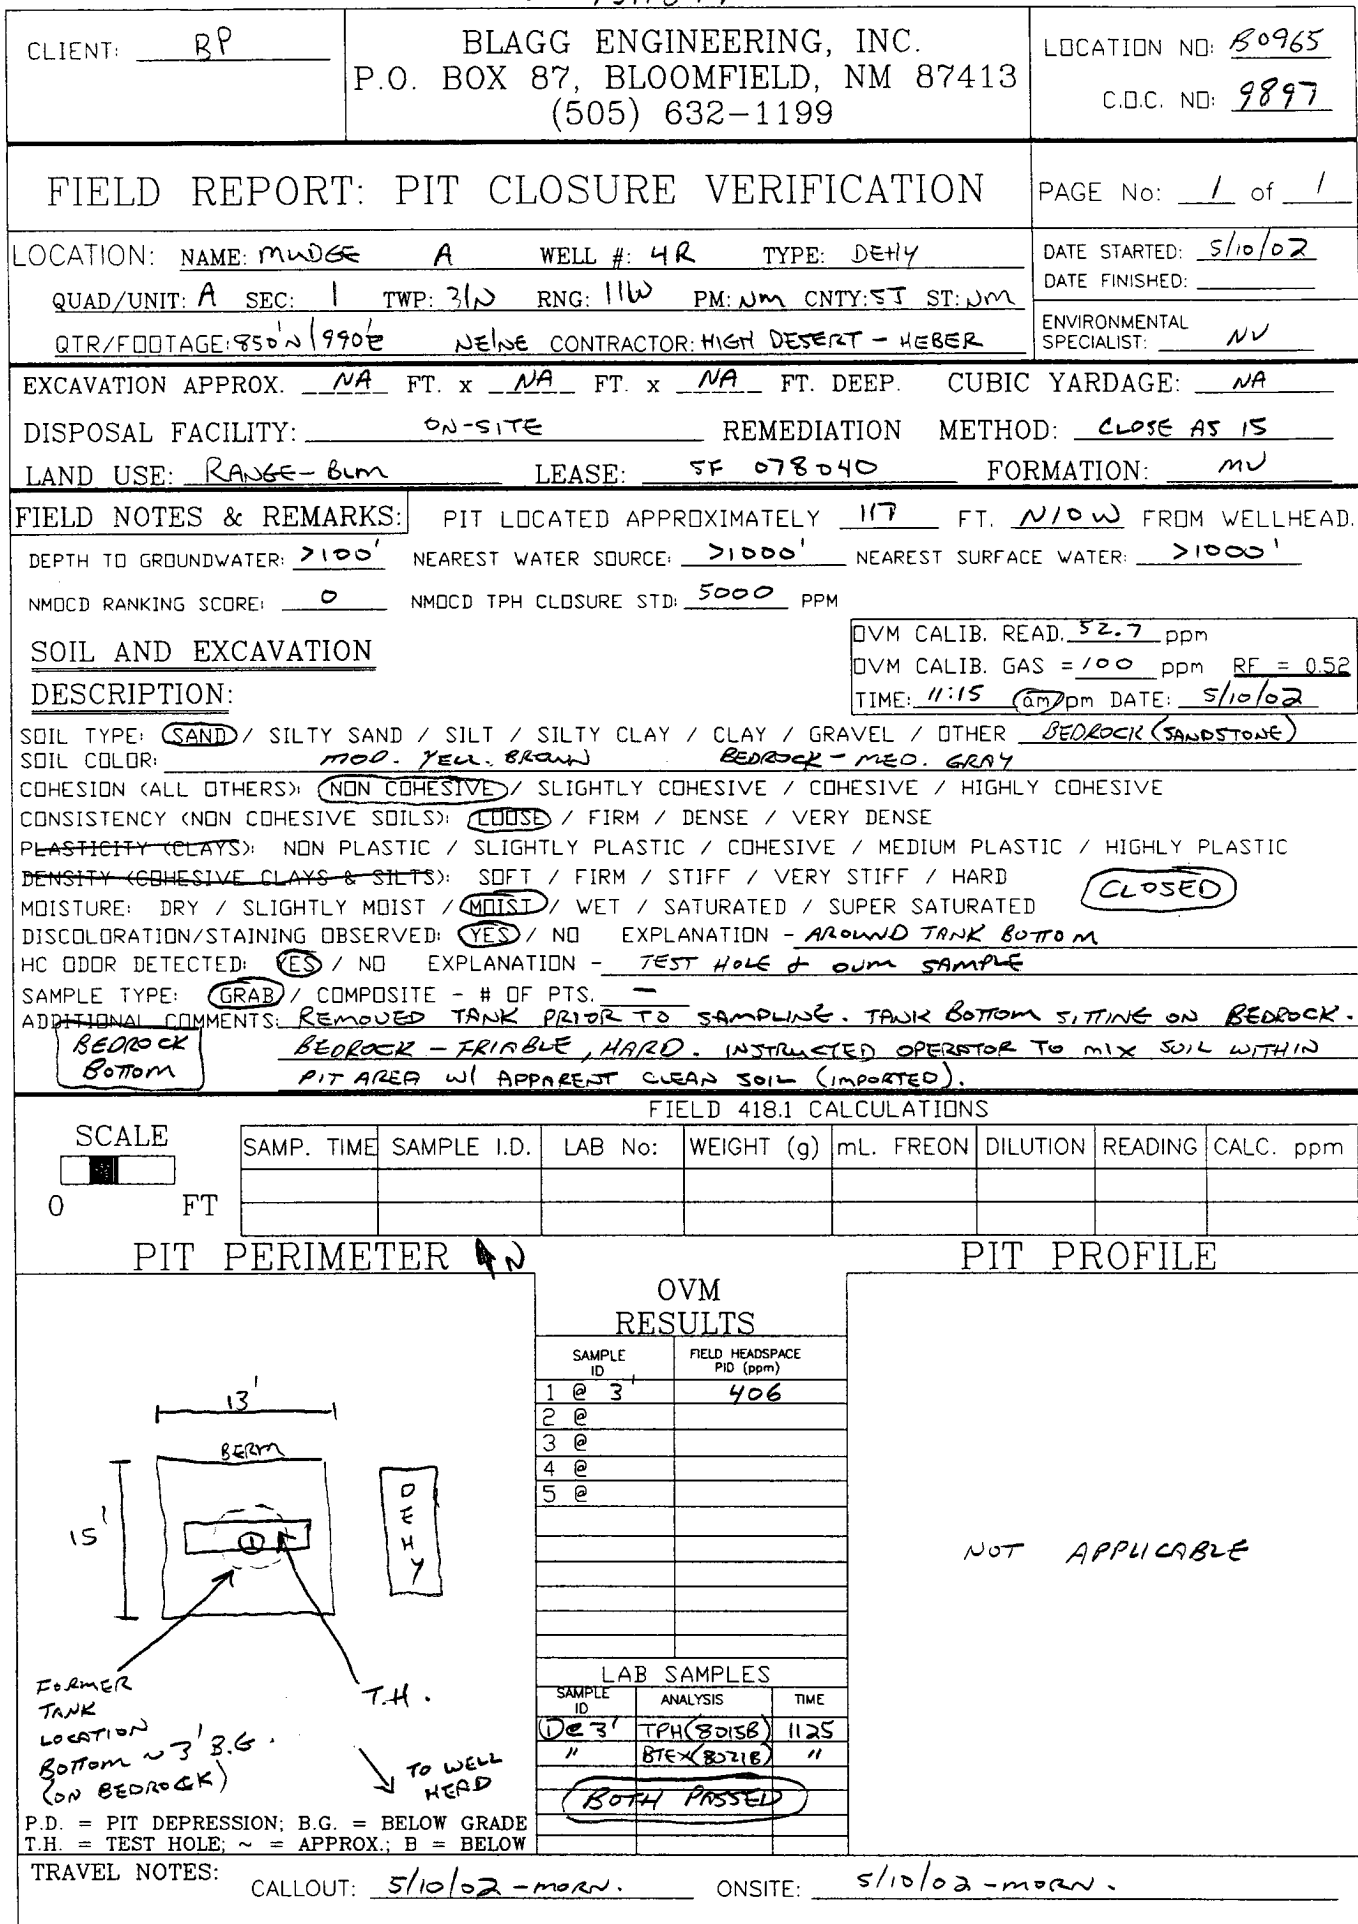 CLIENT: BP
BLAGG ENGINEERING, INC.
P.O. BOX 87, BLOOMFIELD, NM 87413
(505) 632-1199
LOCATION NO: B0965
C.O.C. NO: 9897
FIELD REPORT: PIT CLOSURE VERIFICATION
PAGE No: 1 of 1
LOCATION: NAME: MUDGE A WELL #: 4R TYPE: DEHY
QUAD/UNIT: A SEC: 1 TWP: 31N RNG: 11W PM: NM CNTY: SJ ST: NM
QTR/FOOTAGE: 850'N/990'E NE/NE CONTRACTOR: HIGH DESERT - HEBER
DATE STARTED: 5/10/02
DATE FINISHED:
ENVIRONMENTAL
SPECIALIST: NV
EXCAVATION APPROX. NA FT. x NA FT. x NA FT. DEEP. CUBIC YARDAGE: NA
DISPOSAL FACILITY: ON-SITE REMEDIATION METHOD: CLOSE AS IS
LAND USE: RANGE - BLM LEASE: SF 078040 FORMATION: MV
FIELD NOTES & REMARKS: PIT LOCATED APPROXIMATELY 117 FT. N10W FROM WELLHEAD.
DEPTH TO GROUNDWATER: >100' NEAREST WATER SOURCE: >1000' NEAREST SURFACE WATER: >1000'
NMOCD RANKING SCORE: 0 NMOCD TPH CLOSURE STD: 5000 PPM
SOIL AND EXCAVATION
DESCRIPTION:
OVM CALIB. READ. 52.7 ppm
OVM CALIB. GAS = 100 ppm RF = 0.52
TIME: 11:15 am/pm DATE: 5/10/02
SOIL TYPE: SAND / SILTY SAND / SILT / SILTY CLAY / CLAY / GRAVEL / OTHER BEDROCK (SANDSTONE)
SOIL COLOR: MOD. YELL. BROWN BEDROCK - MED. GRAY
COHESION (ALL OTHERS): NON COHESIVE / SLIGHTLY COHESIVE / COHESIVE / HIGHLY COHESIVE
CONSISTENCY (NON COHESIVE SOILS): LOOSE / FIRM / DENSE / VERY DENSE
PLASTICITY (CLAYS): NON PLASTIC / SLIGHTLY PLASTIC / COHESIVE / MEDIUM PLASTIC / HIGHLY PLASTIC
DENSITY (COHESIVE CLAYS & SILTS): SOFT / FIRM / STIFF / VERY STIFF / HARD
CLOSED
MOISTURE: DRY / SLIGHTLY MOIST / MOIST / WET / SATURATED / SUPER SATURATED
DISCOLORATION/STAINING OBSERVED: YES / NO EXPLANATION - AROUND TANK BOTTOM
HC ODOR DETECTED: YES / NO EXPLANATION - TEST HOLE & OVM SAMPLE
SAMPLE TYPE: GRAB / COMPOSITE - # OF PTS. —
ADDITIONAL COMMENTS: REMOVED TANK PRIOR TO SAMPLING. TANK BOTTOM SITTING ON BEDROCK.
BEDROCK - FRIABLE, HARD. INSTRUCTED OPERATOR TO MIX SOIL WITHIN
PIT AREA W/ APPARENT CLEAN SOIL (IMPORTED).
BEDROCK
BOTTOM
FIELD 418.1 CALCULATIONS
SCALE
0 FT
SAMP. TIME SAMPLE I.D. LAB No: WEIGHT (g) mL. FREON DILUTION READING CALC. ppm
PIT PERIMETER N
PIT PROFILE
OVM
RESULTS
SAMPLE
ID
FIELD HEADSPACE
PID (ppm)
1 @ 3' 406
2 @
3 @
4 @
5 @
13'
BERM
15'
1
DEHY
NOT APPLICABLE
FORMER
TANK
LOCATION
BOTTOM ~ 3' B.G.
(ON BEDROCK)
T.H.
TO WELL
HEAD
LAB SAMPLES
SAMPLE
ID
ANALYSIS
TIME
1 @ 3' TPH (8015B) 1125
" BTEX (8021B) "
BOTH PASSED
P.D. = PIT DEPRESSION; B.G. = BELOW GRADE
T.H. = TEST HOLE; ~ = APPROX.; B = BELOW
TRAVEL NOTES:
CALLOUT: 5/10/02 - MORN. ONSITE: 5/10/02 - MORN.